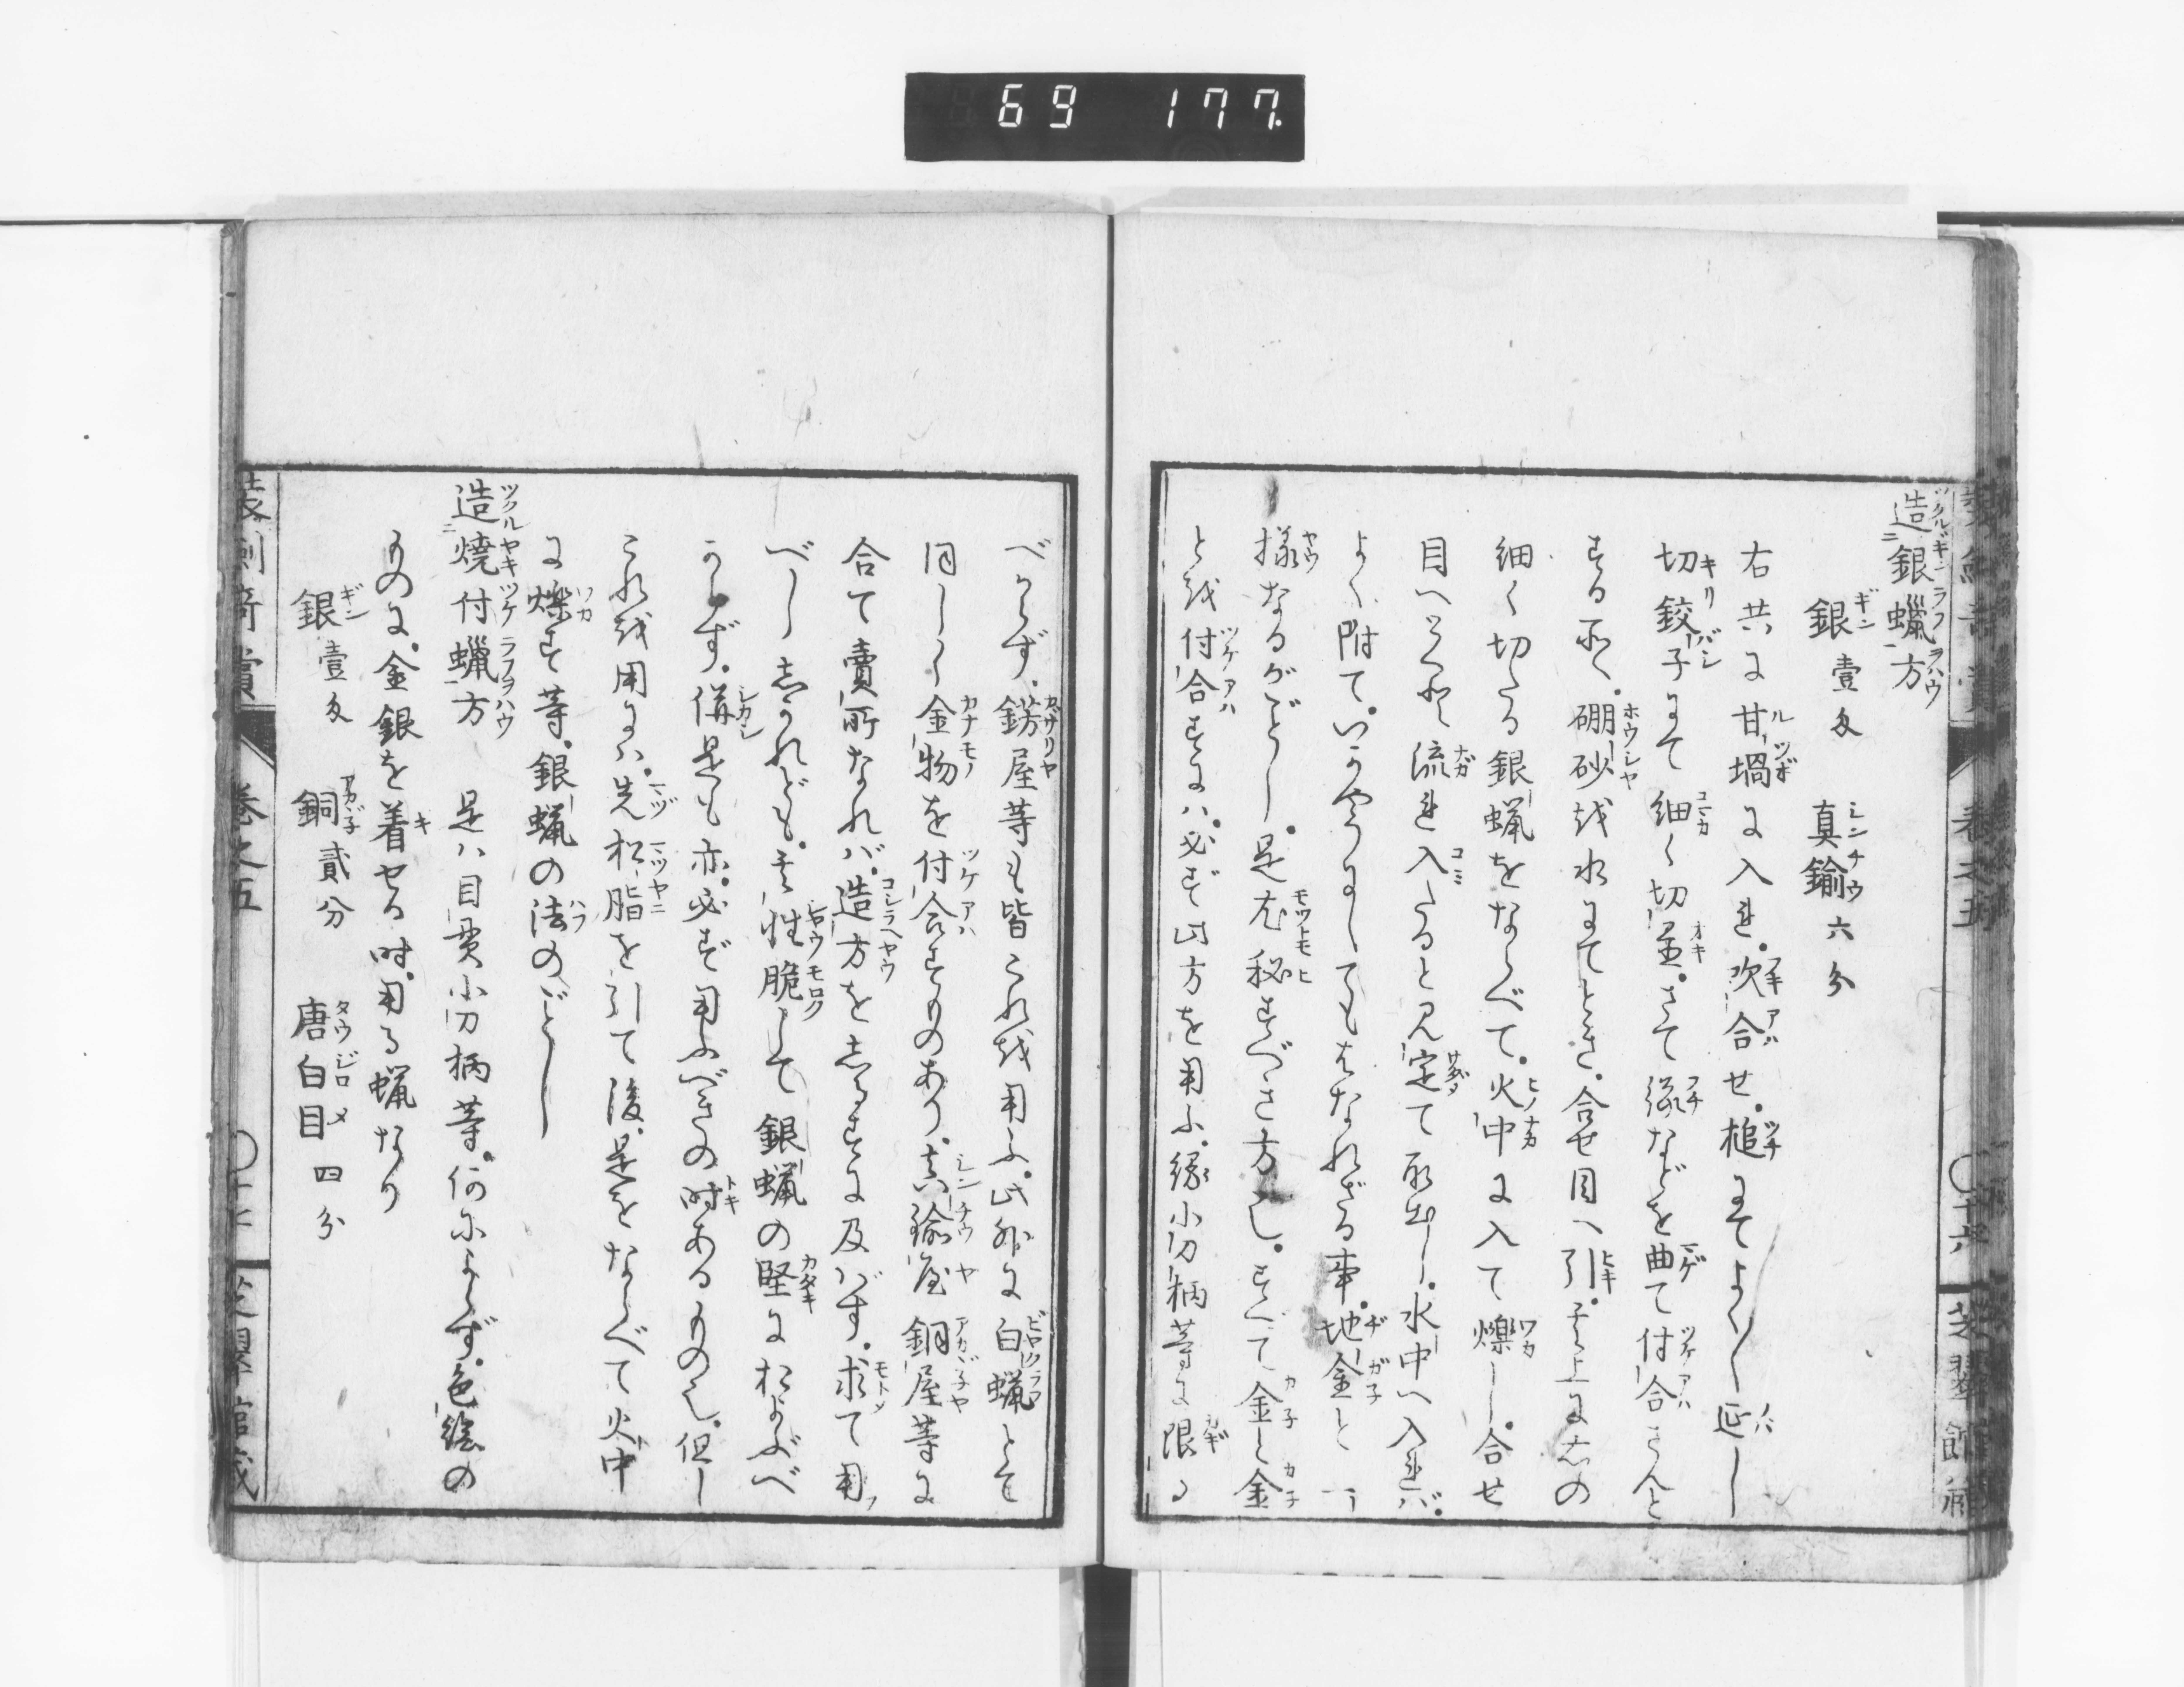 69 177
造銀蝋方
銀壹匁 真鍮六分
右共に甘堝に入れ。吹合せ。槌にてよく〳〵延し
切鉸子にて細く切置。さて鐚などを曲て付合さんと
する所へ。硼砂を水にてとき。合せ目へ引。其上に右の
細く切たる銀蝋をならべて。火中に入て爍し。合せ
目へとくと流れ入たると見定て取出し。水中へ入れバ。
よく附て。いかやうにしてもはなれざる事。地金と一
様なるがごとし。是尤秘すべき方也。すべて金と金
とを付合すにハ。必ず此方を用ふ。縁小刀柄等に限る
べからず。錺屋等も皆これを用ふ。此外に白蝋とて
同しく金物を付合すものあり。真鍮屋銅屋等に
合て賣所なれバ。造方をしるすに及バず。求て用
べし しかれども。其性脆して銀蝋の堅におよぶべ
からず。併是も亦。必ず用ふべきの時あるもの也。但し
これを用るにハ。先松脂を引て後。是をならべて火中
に爍す等。銀蝋の法のごとし
造焼付蝋方 是ハ目貫小刀柄等。何によらず。色絵の
ものに。金銀を着せる時。用る蝋なり
銀壹匁 銅貳分 唐白目四分
装劍奇賞 巻之五